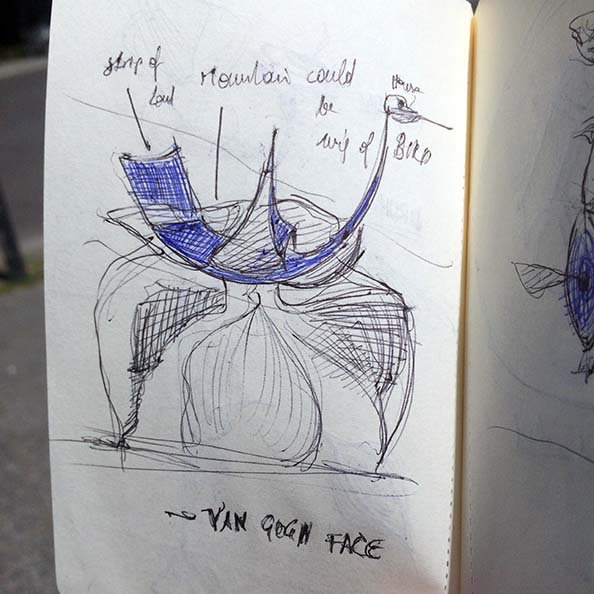 strip of
land
mountain could
be
wing of BIRD
House
~ VAN GOGH FACE